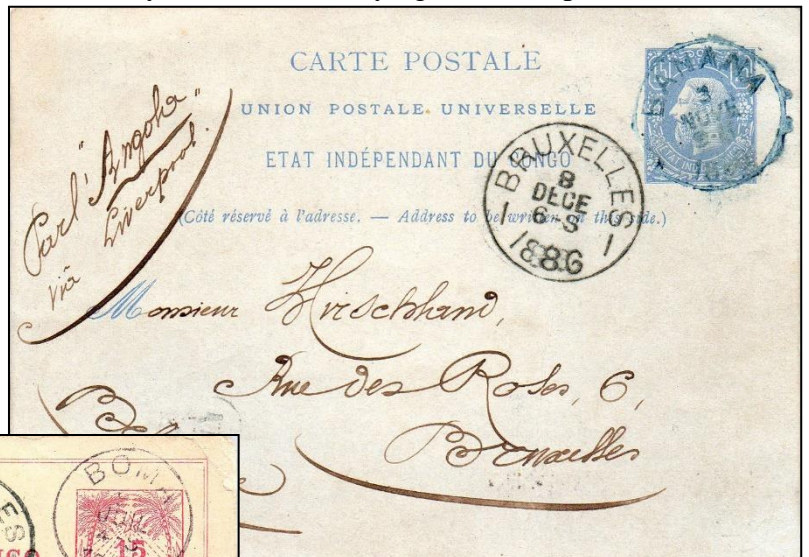 CARTE POSTALE
UNION POSTALE UNIVERSELLE
ETAT INDÉPENDANT DU CONGO
(Côté réservé à l'adresse. — Address to be written on this side.)
Par l' "Angola"
viâ Liverpool.
BANANA
3
NOVE
BRUXELLES
8
DECE
6-S
1886
1 1
Monsieur Hirschland,
Rue des Roses, 6,
Bruxelles
BOMA
15